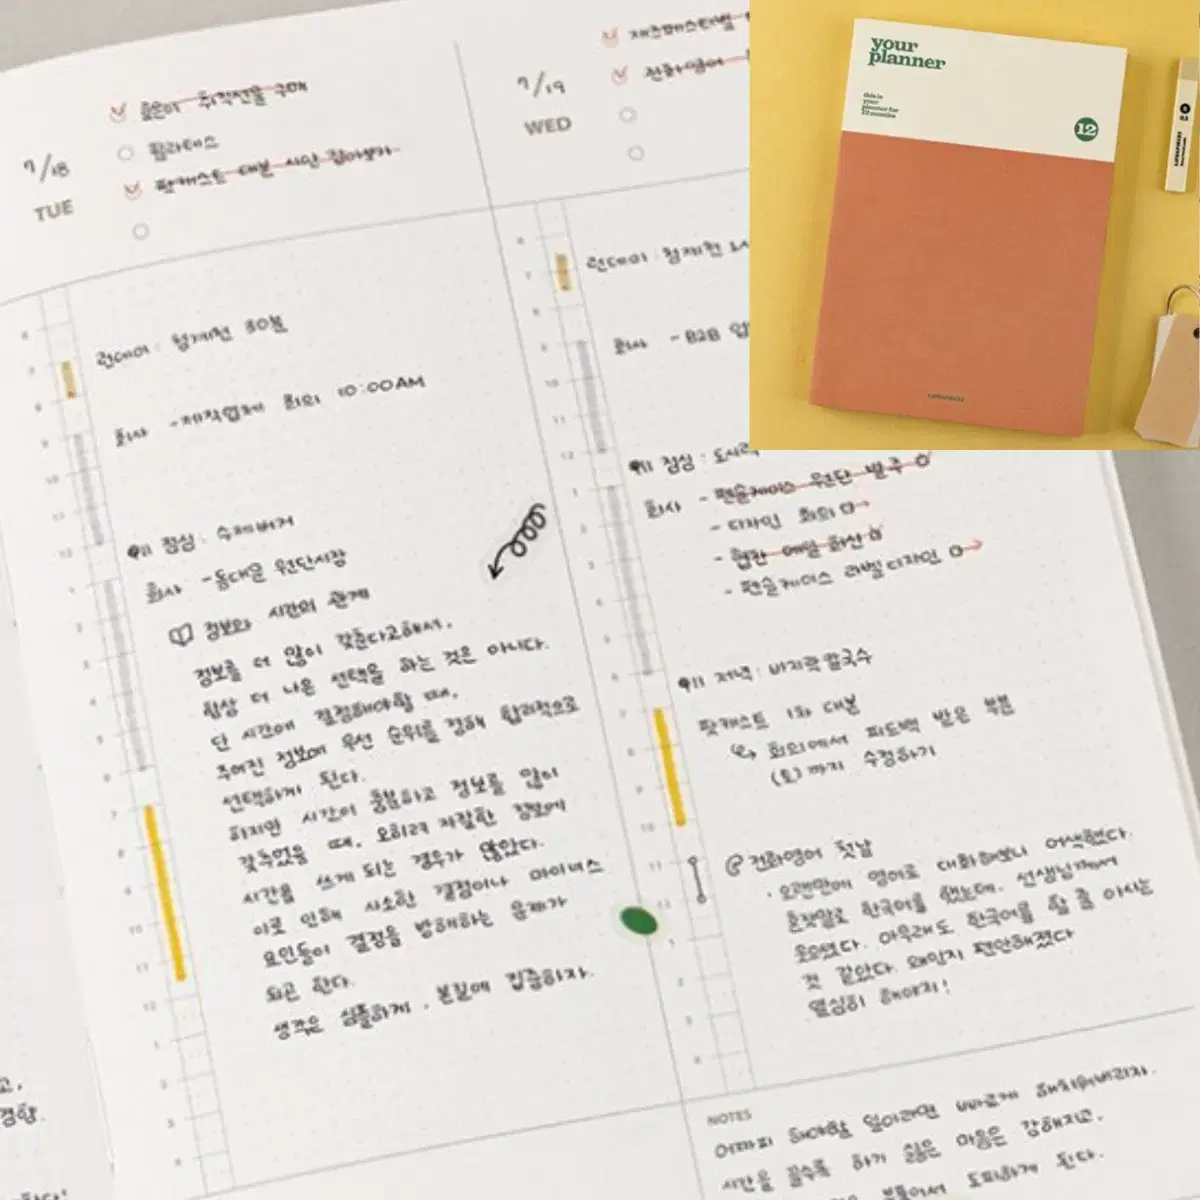 7/18
TUE
필라테스
팟캐스트 대본 시안 잡아보기
런데이 : 청계천 30분
회사 - 제작업체 회의 10:00AM
점심 : 수제버거
회사 - 동대문 원단시장
정보와 시간의 관계
정보를 더 많이 갖춘다고해서,
항상 더 나은 선택을 하는 것은 아니다.
단 시간에 결정해야할 때,
주어진 정보에 우선 순위를 정해 합리적으로
선택하게 된다.
하지만 시간이 충분하고 정보를 많이
갖추었을 때, 오히려 자잘한 정보에
시간을 쓰게 되는 경우가 많았다.
이로 인해 사소한 결정이나 마이너스
요인들이 결정을 방해하는 문제가
되곤 한다.
생각은 심플하게, 본질에 집중하자.
7/19
WED
전화영어
런데이 : 청계천
회사 - B2B
점심 : 도시락
회사 - 펜슬케이스 원단 발주
- 디자인 회의
- 협찬 메일 회신
- 펜슬케이스 라벨 디자인
저녁 : 바지락칼국수
팟캐스트 1차 대본
회의에서 피드백 받은 부분
(토)까지 수정하기
전화영어 첫날
· 오랜만에 영어로 대화해보니 어색했다.
혼잣말로 한국어를 했는데, 선생님께서
웃으셨다. 아무래도 한국어를 할 줄 아시는
것 같았다. 왜인지 편안해졌다
열심히 해야지!
NOTES
어차피 해야할 일이라면 빠르게 해치워버리자.
시간을 끌수록 하기 싫은 마음은 강해지고,
도피하게 된다.
your
planner
this is
your
planner for
12 months
12